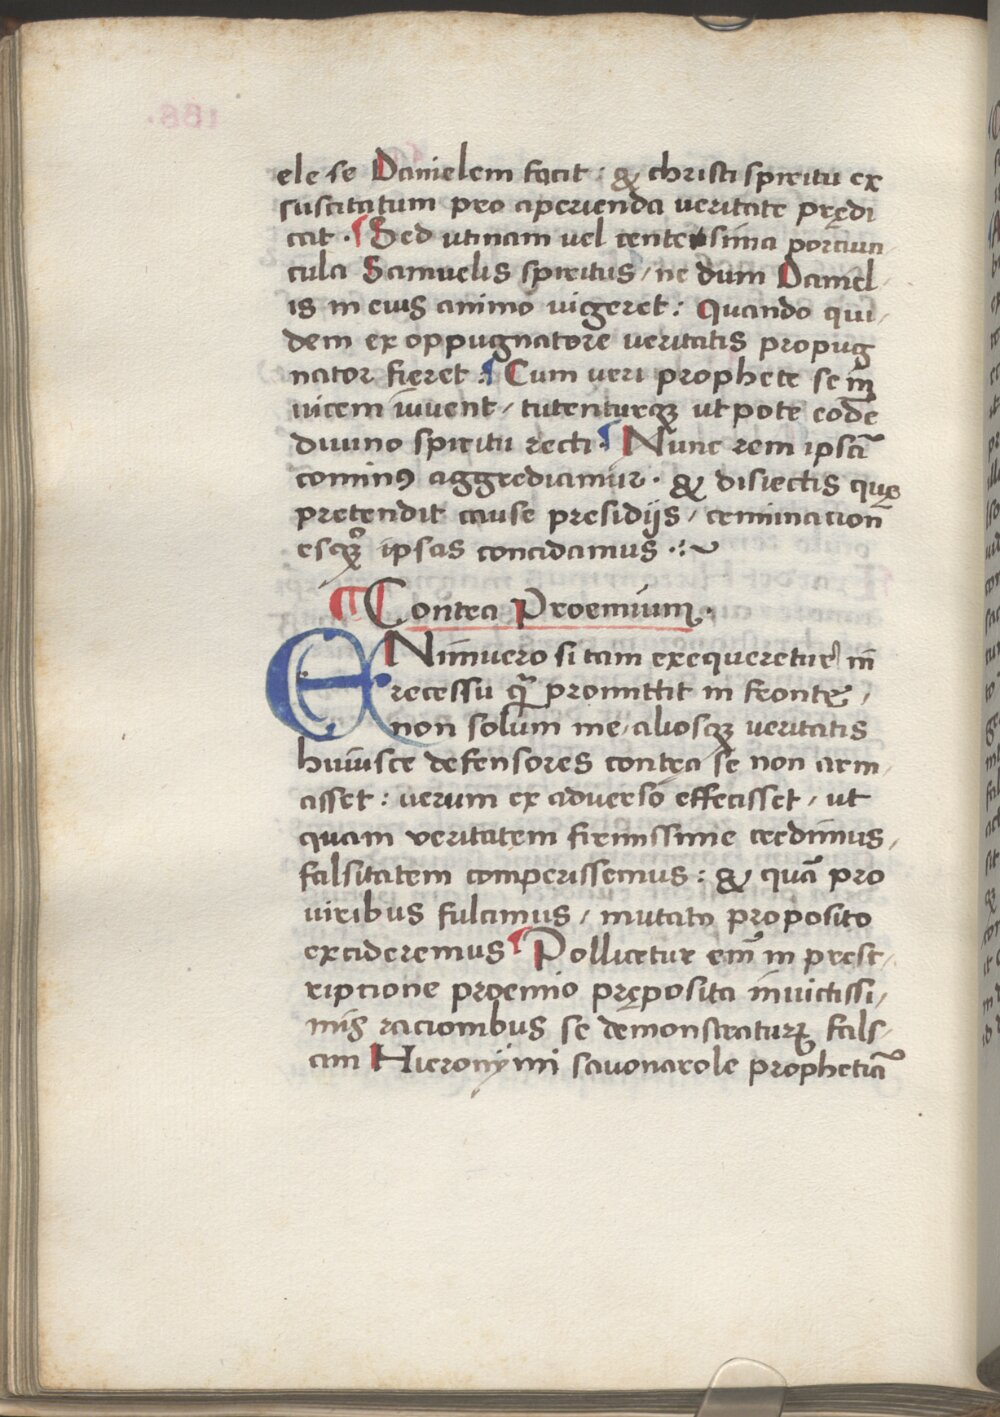 ele se Danielem facit : & christi spiritu ex
suscitatum pro aperienda veritate prędi
cat · ¶ Sed utinam vel centesima porciun,
cula Samuelis spiritus / ne dum Daniel,
is in eius animo uigeret : Quando qui,
dem ex oppugnatore veritatis propug
nator fieret : ¶ Cum veri prophete se in̄
uicem iuvent / tutenturqꝫ ut pote eodē
diuino spiritu recti · ¶ Nunc rem ipsā
cominꝰ aggrediamur · & disiectis quę
pretendit cause presidijs / criminacion̄
esqꝫ ipsas concidamus ·:~
¶ Contra Proemium ·
ENimuero si tam exequeretur in̄
recessu qͣ̄ promittit in fronte /
non solum me / aliosqꝫ veritatis
huiusce defensores contra se non arm,
asset : uerum ex adverso effecisset / ut
quam veritatem firmissime credimus /
falsitatem comperissemus : & quā pro
uiribus fulcimus / mutato proposito
excideremus ¶ Pollicetur em̄ in prest,
ripcione proemio pręposita inuictissi,
mis racionibus se demonstraturꝫ fals,
am Hieronymi sauonarole prophetiā